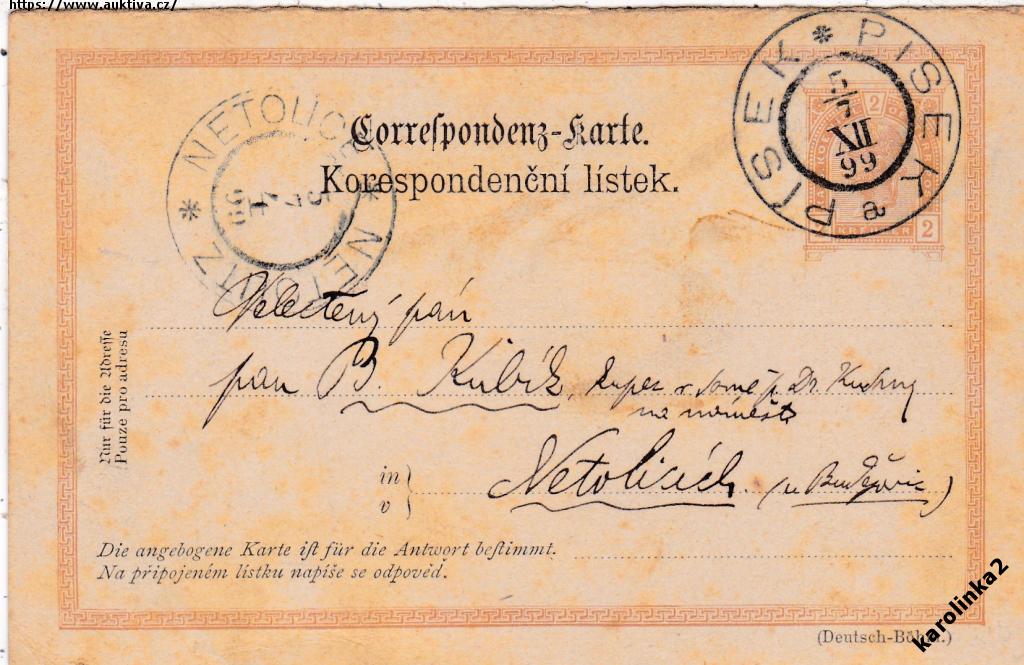 https://www.auktiva.cz/
PISEK * PÍSEK a
5/7
XII
99
2 2
KREUZER
NETOLICE * NETOLITZ *
5
99
Correspondenz-Karte.
Korespondenční lístek.
Velectěný pán
pan B. Kubík, kupec v domě p. Dr. Kudrny
na náměstí
Nur für die Adresse
Pouze pro adresu
in
v
Netolicích. (u Budějovic)
Die angebogene Karte ist für die Antwort bestimmt.
Na připojeném lístku napíše se odpověd.
(Deutsch-Böhm.)
karolinka2